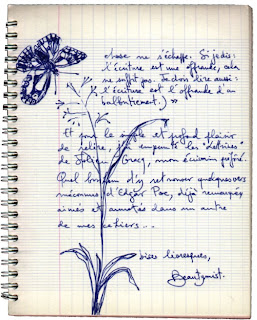 chose ne s'échappe. Si je dis :
l'écriture est une offrande, cela
ne suffit pas. Je dois dire aussi :
l'écriture est l'offrande d'un
balbutiement.) »
Et pour le simple et profond plaisir
de relire, j'ai emprunté les "Lettrines"
de Julien Gracq, mon écrivain préféré.
Quel bonheur d'y retrouver quelques vers
méconnus d'Edgar Poe, déjà remarqués,
aimés et annotés dans un autre
de mes cahiers...
Bises